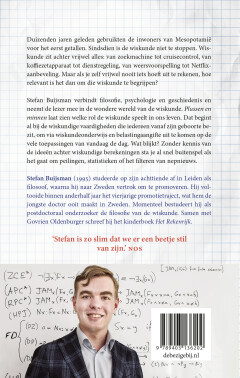 Duizenden jaren geleden gebruikten de inwoners van Mesopotamië
voor het eerst getallen. Sindsdien is de wiskunde niet te stoppen. Wis-
kunde zit achter vrijwel alles van zoekmachine tot cruisecontrol, van
koffiezetapparaat tot dienstregeling, van weersvoorspelling tot Netflix-
aanbeveling. Maar als je zelf vrijwel nooit iets hoeft uit te rekenen, hoe
relevant is het dan om die wiskunde te begrijpen?
Stefan Buijsman verbindt filosofie, psychologie en geschiedenis en
neemt de lezer mee in de wondere wereld van de wiskunde. Plussen en
minnen laat zien welke rol de wiskunde speelt in ons leven. Dat begint
al bij de wiskundige vaardigheden die iedereen vanaf zijn geboorte be-
zit, om via wiskundeonderwijs en belastingaangifte uit te komen op de
vele toepassingen van vandaag de dag. Wat blijkt? Zonder kennis van
de ideeën achter wiskundige berekeningen sta je al snel buitenspel als
het gaat om peilingen, statistieken of het filteren van nepnieuws.
Stefan Buijsman (1995) studeerde op zijn achttiende af in Leiden als
filosoof, waarna hij naar Zweden vertrok om te promoveren. Hij vol-
tooide binnen anderhalf jaar het vierjarige promotietraject, wat hem de
jongste doctor ooit maakt in Zweden. Momenteel bestudeert hij als
postdoctoraal onderzoeker de filosofie van de wiskunde. Samen met
Govrien Oldenburger schreef hij het kinderboek Het Rekenrijk.
'Stefan is zo slim dat we er een beetje stil
van zijn.' NOS
9 789403 136202
debezigebij.nl